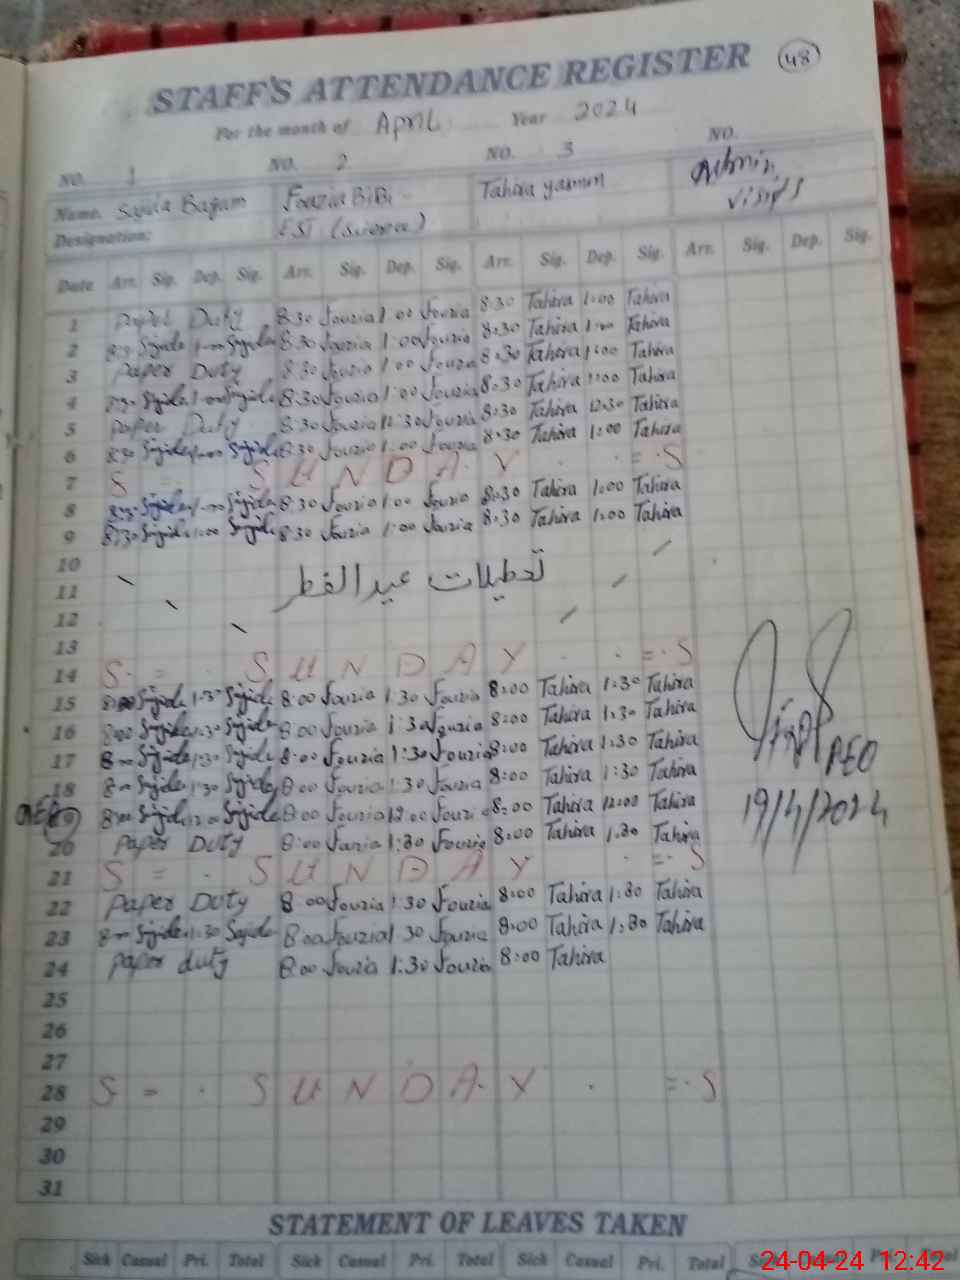 48
STAFF'S ATTENDANCE REGISTER
For the month of April Year 2024
NO. 1 NO. 2 NO. 3 NO.
Name. Sajida Bagam Fouzia BiBi Tahira yasmin Admin, visits
Designation: EST (Science)
Date Arr. Sig. Dep. Sig. Arr. Sig. Dep. Sig. Arr. Sig. Dep. Sig. Arr. Sig. Dep. Sig.
1 Paper Duty 8:30 Fouzia 1:00 Fouzia 8:30 Tahira 1:00 Tahira
2 8:30 Sajida 1:00 Sajida 8:30 Fouzia 1:00 Fouzia 8:30 Tahira 1:00 Tahira
3 Paper Duty 8:30 Fouzia 1:00 Fouzia 8:30 Tahira 1:00 Tahira
4 8:30 Sajida 1:00 Sajida 8:30 Fouzia 1:00 Fouzia 8:30 Tahira 1:00 Tahira
5 Paper Duty 8:30 Fouzia 12:30 Fouzia 8:30 Tahira 12:30 Tahira
6 8:30 Sajida 1:00 Sajida 8:30 Fouzia 1:00 Fouzia 8:30 Tahira 1:00 Tahira
7 S = . S U N D A Y . . = . S
8 8:30 Sajida 1:00 Sajida 8:30 Fouzia 1:00 Fouzia 8:30 Tahira 1:00 Tahira
9 8:30 Sajida 1:00 Sajida 8:30 Fouzia 1:00 Fouzia 8:30 Tahira 1:00 Tahira
10
11 تعطیلات عید الفطر
12
13
14 S . = . S U N D A Y . . = . S
15 8:00 Sajida 1:30 Sajida 8:00 Fouzia 1:30 Fouzia 8:00 Tahira 1:30 Tahira
16 8:00 Sajida 1:30 Sajida 8:00 Fouzia 1:30 Fouzia 8:00 Tahira 1:30 Tahira
17 8:00 Sajida 1:30 Sajida 8:00 Fouzia 1:30 Fouzia 8:00 Tahira 1:30 Tahira
18 8:00 Sajida 1:30 Sajida 8:00 Fouzia 1:30 Fouzia 8:00 Tahira 1:30 Tahira
19 8:00 Sajida 12:00 Sajida 8:00 Fouzia 12:00 Fouzia 8:00 Tahira 12:00 Tahira
PEO
19/4/2024
20 Paper Duty 8:00 Fouzia 1:30 Fouzia 8:00 Tahira 1:30 Tahira
21 S = . S U N D A Y . = . S
22 Paper Duty 8:00 Fouzia 1:30 Fouzia 8:00 Tahira 1:30 Tahira
23 8:00 Sajida 1:30 Sajida 8:00 Fouzia 1:30 Fouzia 8:00 Tahira 1:30 Tahira
24 Paper duty 8:00 Fouzia 1:30 Fouzia 8:00 Tahira
25
26
27
28 S = . S U N D A Y . = . S
29
30
31
STATEMENT OF LEAVES TAKEN
Sick Casual Pri. Total Sick Casual Pri. Total Sick Casual Pri. Total Sick
24-04-24 12:42